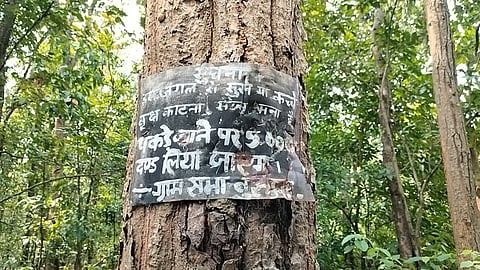 सूचना
जंगल से सुखे या कच्चे
काटना सख्त मना है
पकडे जाने पर 5,000
दण्ड लिया जाएगा
—ग्राम सभा